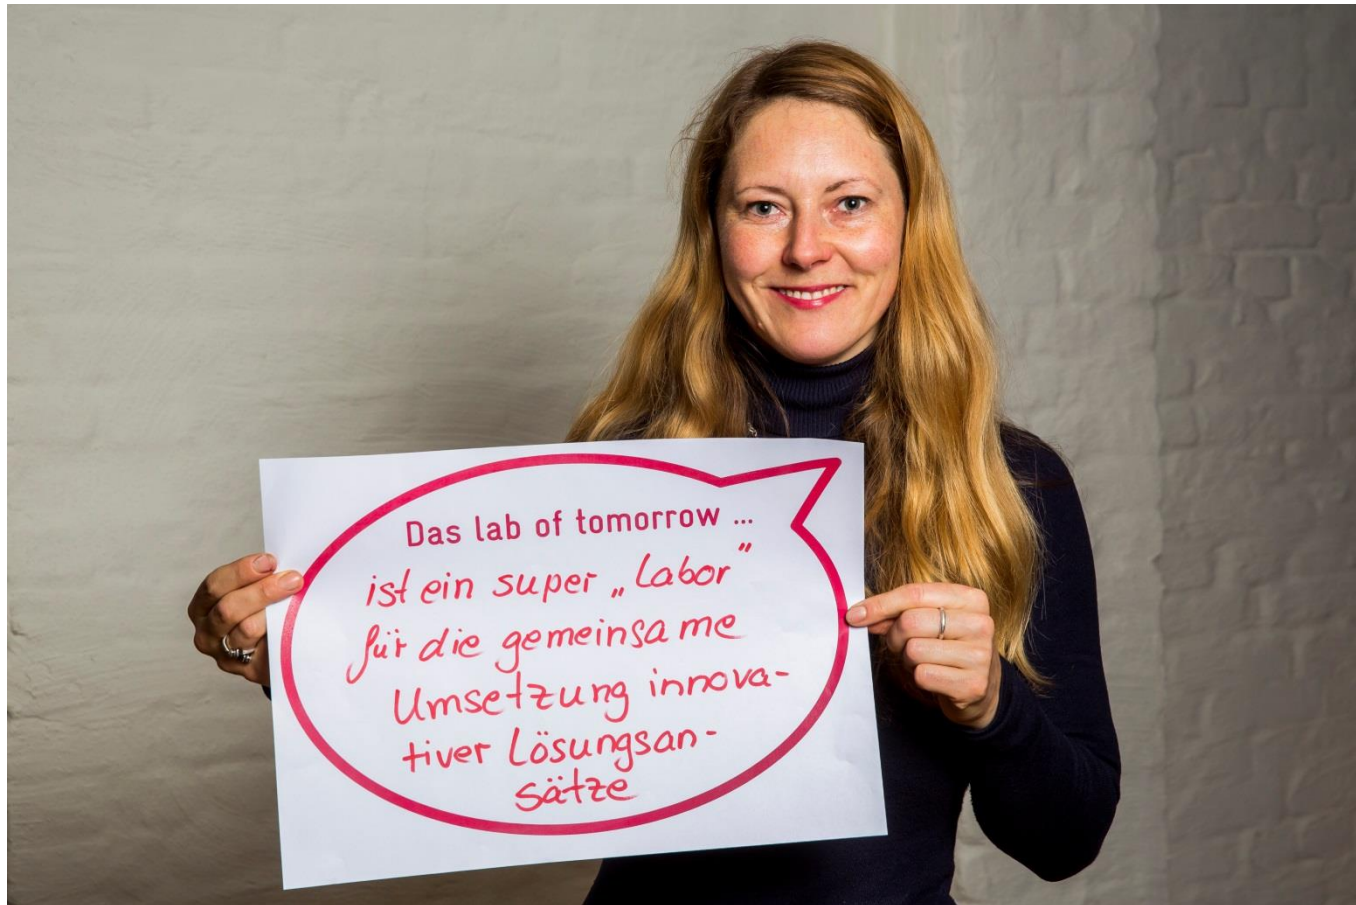 Das lab of tomorrow ...
ist ein super „Labor”
für die gemeinsame
Umsetzung innova-
tiver Lösungsan-
sätze